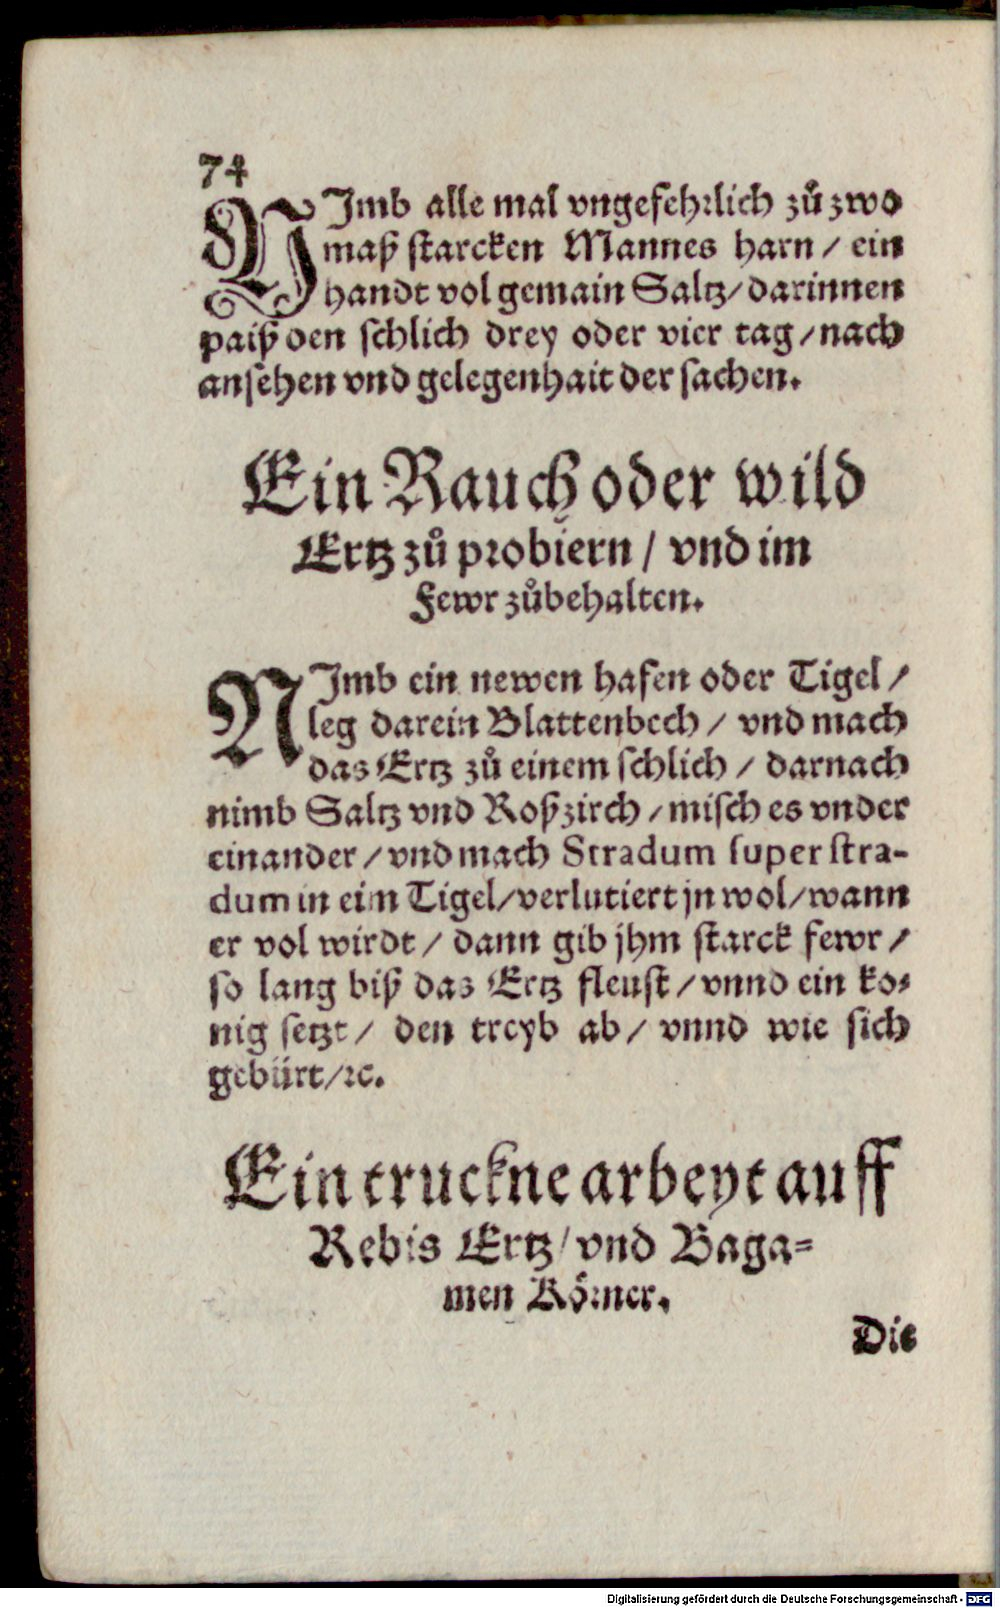 74
NImb alle mal vngefehrlich zů zwo
maß starcken Mannes harn / ein
handt vol gemain Saltz / darinnen
paiß den schlich drey oder vier tag / nach
ansehen vnd gelegenhait der sachen.
Ein Rauch oder wild
Ertz zů probiern / vnd im
Fewr zůbehalten.
NImb ein newen hafen oder Tigel /
leg darein Blattenbech / vnd mach
das Ertz zů einem schlich / darnach
nimb Saltz vnd Roßzirch / misch es vnder
einander / vnd mach Stradum super stra-
dum in eim Tigel / verlutiert jn wol / wann
er vol wirdt / dann gib jhm starck fewr /
so lang biß das Ertz fleust / vnnd ein ko-
nig setzt / den treyb ab / vnnd wie sich
gebürt / ꝛc.
Ein truckne arbeyt auff
Rebis Ertz / vnd Baga-
men Körner.
Die
Digitalisierung gefördert durch die Deutsche Forschungsgemeinschaft - DFG